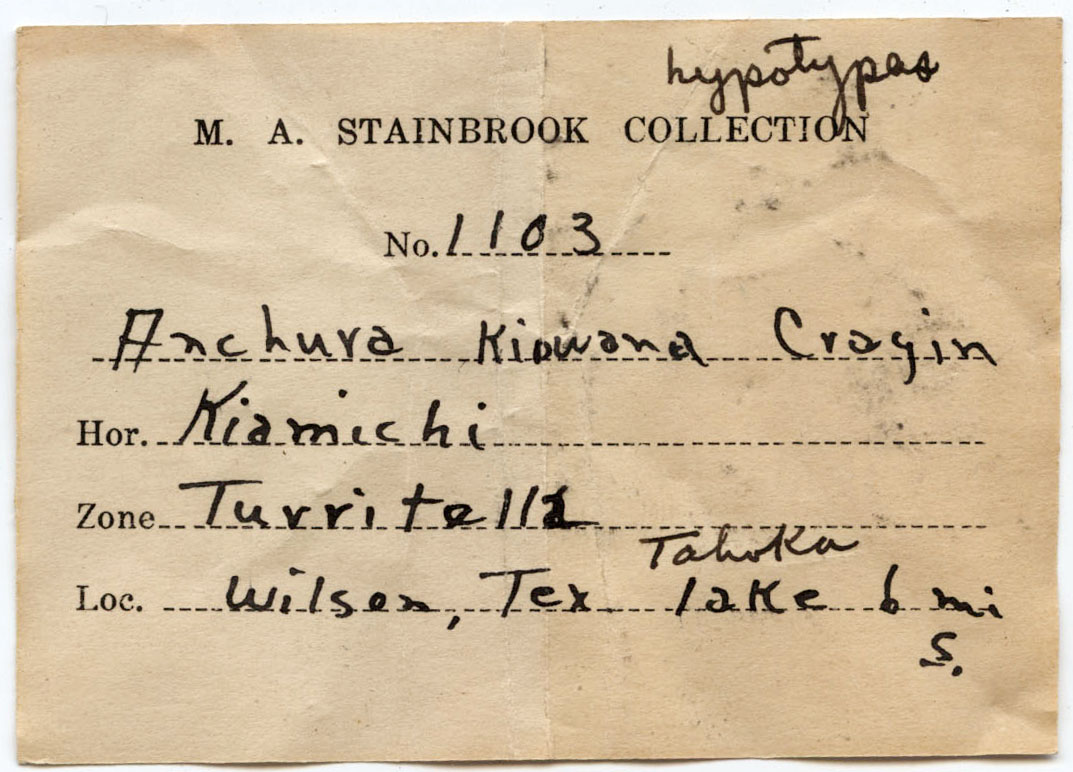 hypotypes
M. A. STAINBROOK COLLECTION
No. 1103
Anchura Kiowana Cragin
Hor. Kiamichi
Zone Turritella
Tahoka
Loc. Wilson, Tex lake 6 mi
S.